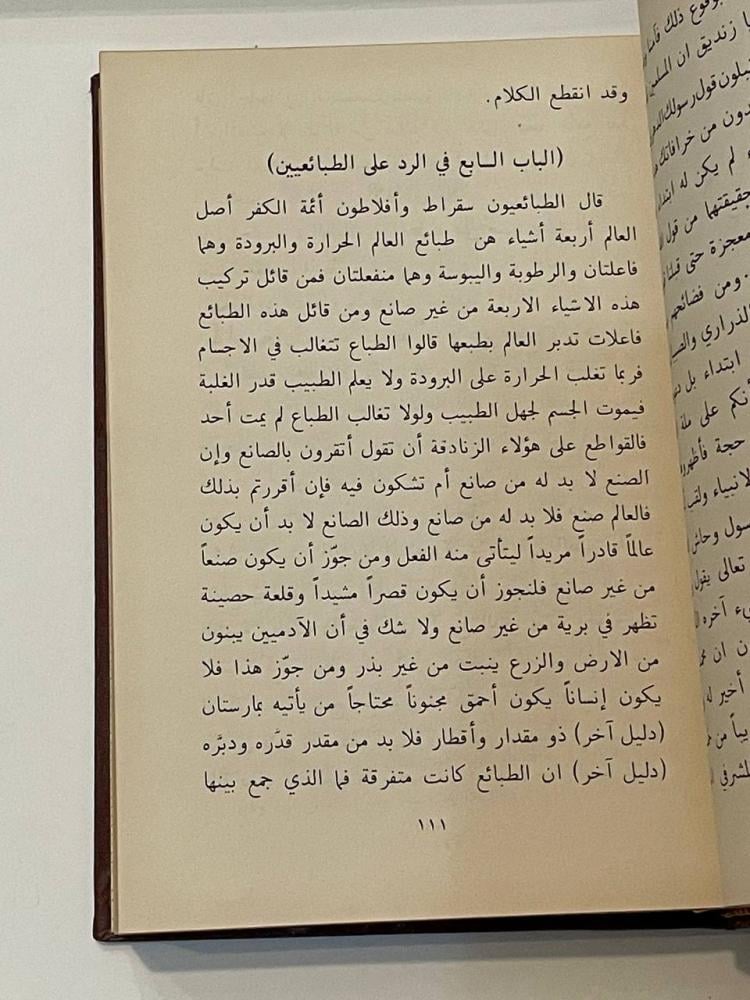 وقد انقطع الكلام.
(الباب السابع في الرد على الطبائعيين)
قال الطبائعيون سقراط وأفلاطون أئمة الكفر أصل
العالم أربعة أشياء هن طبائع العالم الحرارة والبرودة وهما
فاعلتان والرطوبة واليبوسة وهما منفعلتان فمن قائل تركيب
هذه الاشياء الاربعة من غير صانع ومن قائل هذه الطبائع
فاعلات تدبر العالم بطبعها قالوا الطباع تتغالب في الاجسام
فربما تغلب الحرارة على البرودة ولا يعلم الطبيب قدر الغلبة
فيموت الجسم لجهل الطبيب ولولا تغالب الطباع لم يمت أحد
فالقواطع على هؤلاء الزنادقة أن تقول أتقرون بالصانع وإن
الصنع لا بد له من صانع أم تشكون فيه فإن أقررتم بذلك
فالعالم صنع فلا بد له من صانع وذلك الصانع لا بد أن يكون
عالماً قادراً مريداً ليتأتى منه الفعل ومن جوّز أن يكون صنعاً
من غير صانع فلنجوز أن يكون قصراً مشيداً وقلعة حصينة
تظهر في برية من غير صانع ولا شك في أن الآدميين يبنون
من الارض والزرع ينبت من غير بذر ومن جوّز هذا فلا
يكون إنساناً يكون أحمق مجنوناً محتاجاً من يأتيه بمارستان
(دليل آخر) ذو مقدار وأقطار فلا بد من مقدر قدَّره ودبَّره
(دليل آخر) ان الطبائع كانت متفرقة فما الذي جمع بينها
١١١